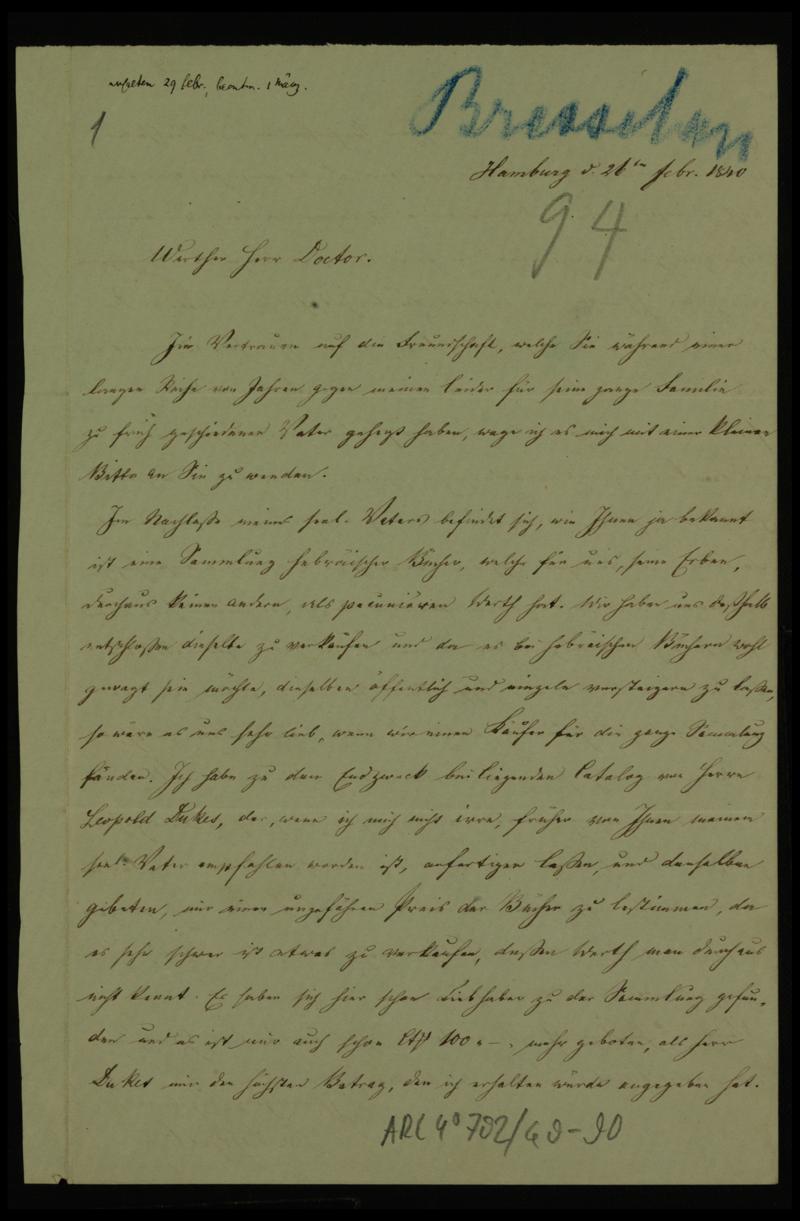 erhalten 29 febr., beantw. 1 März.
1
Bresselau
Hamburg d. 26ten febr. 1840
94
Werther Herr Doctor.
Im Vertrauen auf die Freundschaft, welche Sie während einer
langen Reihe von Jahren gegen meinen leider für seine ganze Familie
zu früh geschiedenen Vater gehegt haben, wage ich es mich mit einer kleinen
Bitte an Sie zu wenden.
Im Nachlaße meines seel. Vaters befindet sich, wie Ihnen ja bekannt
ist eine Sammlung hebräischer Bücher, welche für uns, seine Erben,
durchaus keinen andern, als pecuniären Werth hat. Wir haben uns deßhalb
entschloßen dieselbe zu verkaufen und da es bei hebräischen Büchern wohl
gewagt sein möchte, dieselben öffentlich und einzeln versteigern zu laßen,
so wäre es uns sehr lieb, wenn wir einen Käufer für die ganze Sammlung
fänden. Ich habe zu dem Endzweck beiliegenden Catalog von Herrn
Leopold Dukes, der, wenn ich mich nicht irre, früher von Ihnen meinem
seel. Vater empfohlen worden ist, anfertigen laßen, und denselben
gebeten, mir einen ungefähren Preis der Bücher zu bestimmen, da
es sehr schwer ist etwas zu verkaufen, deßen Werth man durchaus
nicht kennt. Es haben sich hier schon Liebhaber zu der Sammlung gefun-
den und es ist mir auch schon 100 mehr geboten, als Herr
Dukes mir den höchsten Betrag, den ich erhalten würde angegeben hat.
ARC 4° 792/G9-90